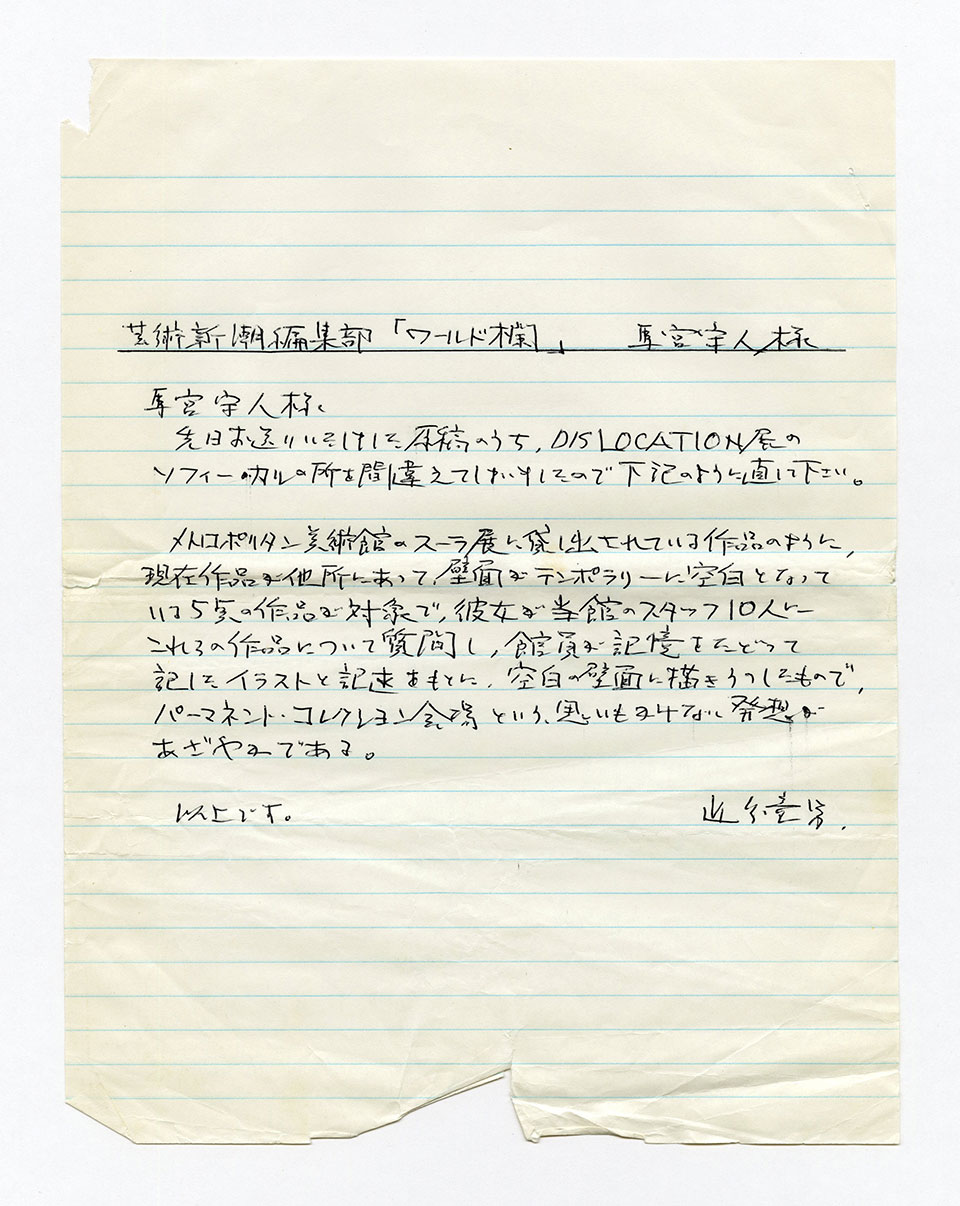 芸術新潮編集部「ワールド欄」 馬宮守人様
馬宮守人様
先日お送りいたしました原稿のうち、DISLOCATION展の
ソフィー・カルの所を間違えてしまいましたので下記のように直して下さい。
メトロポリタン美術館のスーラ展に貸し出されている作品のように、
現在作品が他所にあって、壁面がテンポラリーに空白となって
いる5点の作品が対象で、彼女が当館のスタッフ10人に
これらの作品について質問し、館員が記憶をたどって
記したイラストと記述をもとに、空白の壁面に描きうつしたもので、
パーマネント・コレクション会場という、思いもかけない発想が
あざやかである。
以上です。 近藤竜男.